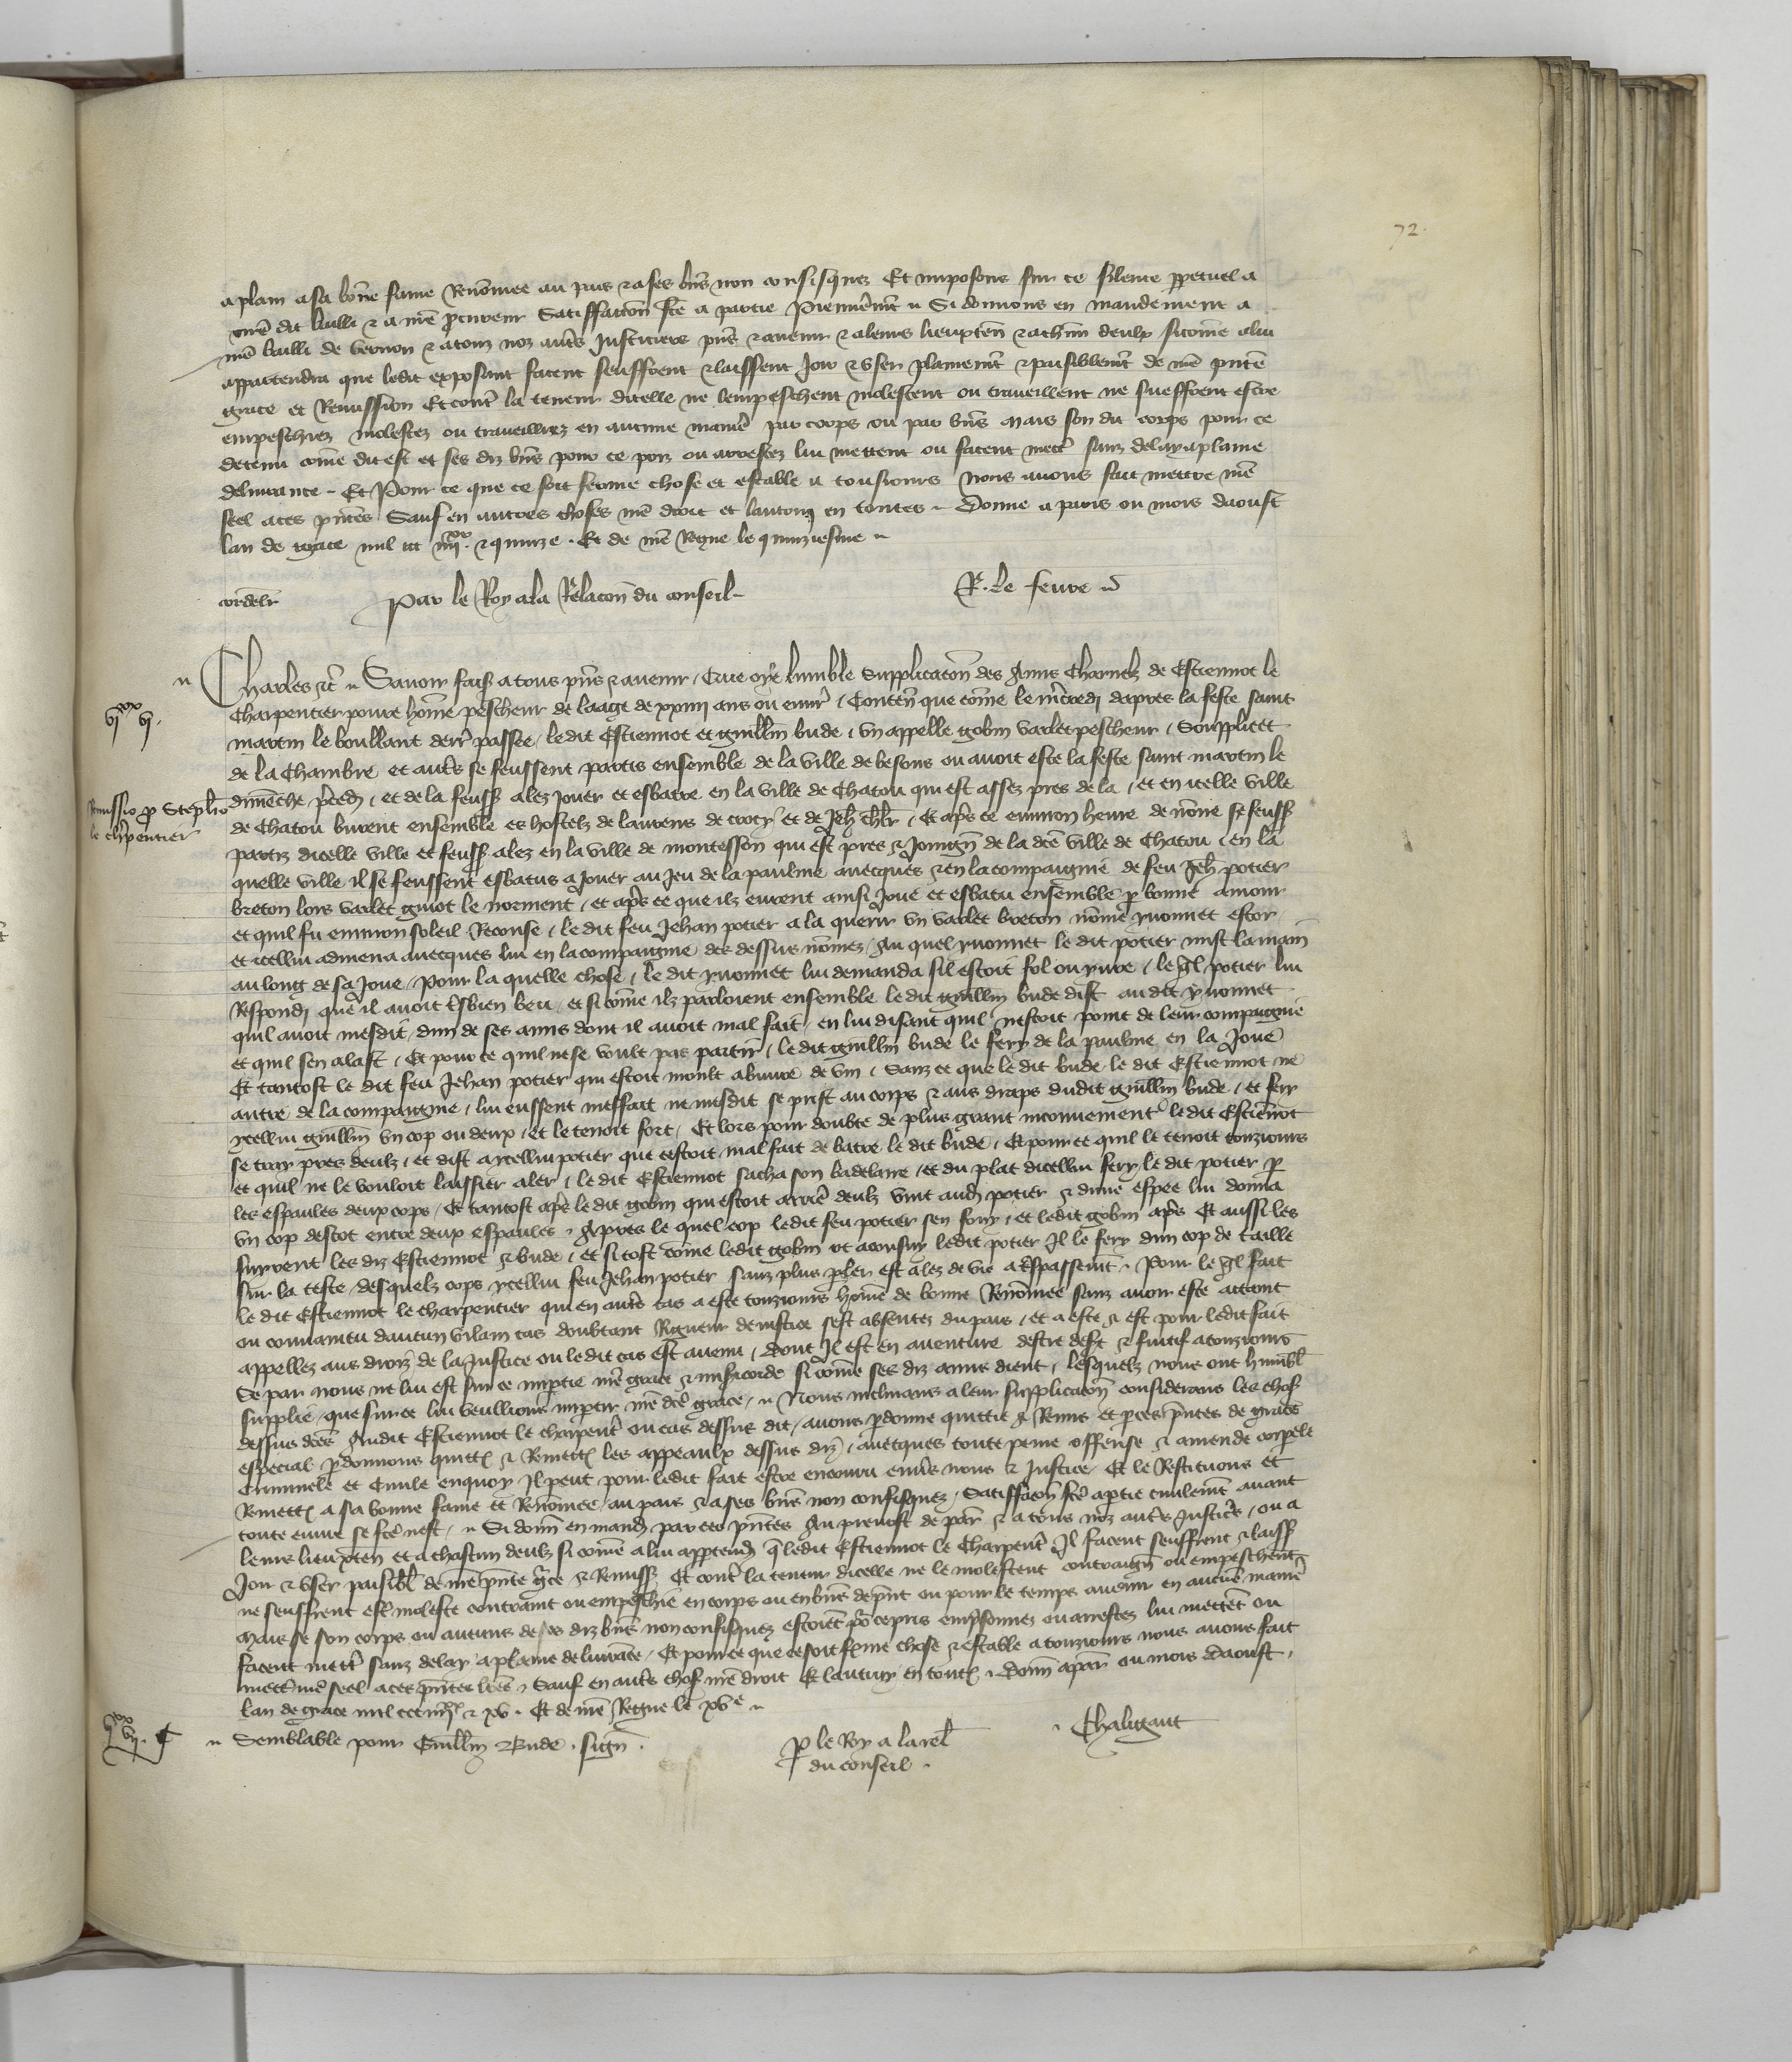 72.
a plain a sa bonne fame Renommee au pais et a ses biens non confisquez Et imposons sur ce silence perpetuel a
nostre dit bailli et a nostre procureur Satisffaction faicte a partie premierement Si donnons en mandement a
nostre bailli de Vernon et a touz noz autres Justiciers presens et avenir et a leurs lieuxten et a chascun deulx sicome a lui
appartendra que ledit exposant facent seuffrent et laissent Joir et user plainemt et paisiblemt de nre pnte
grace et Remission Et contre la teneur dicelle ne lempeschent molestent ou traveillent ne sueffrent estre
empeschiez molestez ou traveilliez en aucune maniere par corps ou par biens mais son dit corps pour ce
detenu come dit est et ses diz biens pour ce pris ou arrestez lui mettent ou facent mettre sanz delay a plaine
delivrance Et Pour ce que ce soit ferme chose et estable a tousiours Nous avons fait mettre nre
seel a ces pntes Sauf en autres choses nre droit et lautruy en toutes Donne a paris ou mois daoust
lan de grace mil ccc iiijxx et quinze. Et de nre Regne le quinziesme
Par le Roy a la Relacon du conseil
P. le fevre
Charles etc Savoir faisons a tous pns et avenir Que oye lumble Supplicacon des Amis Charnelz de Estiennot le
Charpentier povre home pescheur de laage de xxiiij ans ou environ Contenant que come le mercredi dapres la feste saint
vjxx vj.
martin le boullant derr passee ledit Estiennot et guillin bude un appelle gobin varlet pescheur Souppliett
de la Chambre et autres se feussent partis ensemble de la ville de besons ou avoit este la feste saint martin le
dimenche preced et de la feuss alez jouer et esbatre en la ville de Chatou qui est assez pres de la et en icelle ville
Remissio pro Stephano
le charpentier
de Chatou burent ensemble es hostelz de laurens de crocy et de Jeh Et apres ce environ heure de none se feuss
partiz dicelle ville et feuss alez en la ville de montesson qui est pres et Joingn de la dce ville de Chatou en la
quelle ville il se feussent esbatus a Jouer au Jeu de la paulme avecques et en la compaignie de feu Jeh potier
breton lors varlet guiot le norment et apres ce que ilz eurent ainsi Joue et esbatu ensemble par bonne amour
et quil fu environ soleil Reconse le dit feu Jehan potier ala querir un varlet breton nomme yvonnet estor
et icellui admena avecques lui en la compaignie des dessus nomez Au quel yvonnet le dit potier mist la main
au long de sa Joue Pour la quelle chose le dit yvonnet lui demanda sil estoit fol ou yvre le quel potier lui
Respondi que il avoit tresbien beu et si come ilz parloient ensemble le dit guillin bude dist au dit yvonnet
quil avoit mesdit dun de ses amis dont il avoit mal fait en lui disant quil nestoit point de leur compaignie
et quil sen alast Et pour ce quil ne se voult pas partir le dit guillin bude le fery de la paulme en la Joue
Et tantost le dit feu Jehan potier qui estoit moult abuvre de vin Sanz ce que le dit bude le dit Estiennot ne
autre de la compaignie lui eussent meffait ne mesdit se prist au corps et aus draps dudit guillin bude et fery
ycellui guillin un cop ou deux et le tenoit fort Et lors pour doubte de plus grant inconvenient ledit Estiennot
se tray pres deulz et dist a ycellui potier que cestoit mal fait de batre le dit bude Et pour ce quil le tenoit touziours
et quil ne le vouloit laissier aler le dit Estiennot sacha son badelaire et du plat dicellui fery le dit potier par
les espaules deux cops Et tantost apres le dit gobin qui estoit arriere deulz vint audit potier et dune espee lui donna
un cop destot entre deux espaules Apres le quel cop ledit feu potier sen fouy et ledit gobin apres Et aussi les
suyrent les diz Estiennot et bude et si tost come ledit gobin ot aconsuy ledit potier Il le fery dun cop de taille
sur la teste desquelz cops ycellui feu Jehan potier sanz plus parler est alez de vie a trespassement Pour le quel fait
le dit Estiennot le charpentier qui en autres cas a este touziours home de bonne Renommee sanz avoir este attaint
ou convaincu daucun vilain cas doubtant Rigueur de justice sest absentez du pais et a este et est pour ledit fait
appellez aus droiz de la Justice ou ledit cas est avenu dont Il est en aventure destre desert et fuitif a touziours
Se par nous ne lui est sur ce impartie nre grace et misericorde si come ses diz amis dient lesquelz nous ont humbl
supplie que sur ce lui veullions impartir nre dce grace Nous inclinans a leur supplicacon considerans les choses
dessus dces Audit Estiennot le charpentier ou cas dessus dit avons pardonne quittie et Remis et par ces pntes de grace
especial pardonnons quittons et Remettons les appeaulx dessus diz avecques toute peine offense et amende corporele
Criminele et Civile en quoy Il peut pour ledit fait estre encouru envers nous et Justice Et le Restituons et
Remettons a sa bonne fame et Renommee au pais et a ses biens non confisquez Satisfacon fce a partie civilemt avant
toute euvre se fce nest Si donn en mand par ces pntes Au prevost de paris et a tous noz autres Justiciers ou a
leurs lieuxten et a chascun deulz si come a lui appartendra que ledit Estiennot le Charpentier Il facent seuffrent et laissent
Joir et user paisibl de nre pnte grace et Remiss Et contre la teneur dicelle ne le molestent contraignent ou empeschent
ne seuffrent estre moleste contraint ou empeschie en corps ou en biens de pnt ou pour le temps avenir en aucune maniere
Mais se son corps ou aucuns de ses diz biens non confisquez estoient pour ce pris emprisonnez ou arrestez lui mettent ou
facent mettre sanz delay a plaine delivrance Et pour ce que ce soit ferme chose et estable a touziours nous avons fait
mettre nre seel a ces pntes lres Sauf en autres choses nre droit et lautruy en toutes Donn a paris ou mois daoust
lan de grace mil ccc iiijxx et xv. Et de nre Regne le xve
vjxx vij.
Semblable pour Guillin Bude. sign.
P le Roy a la rel
du conseil.
Chaligaut